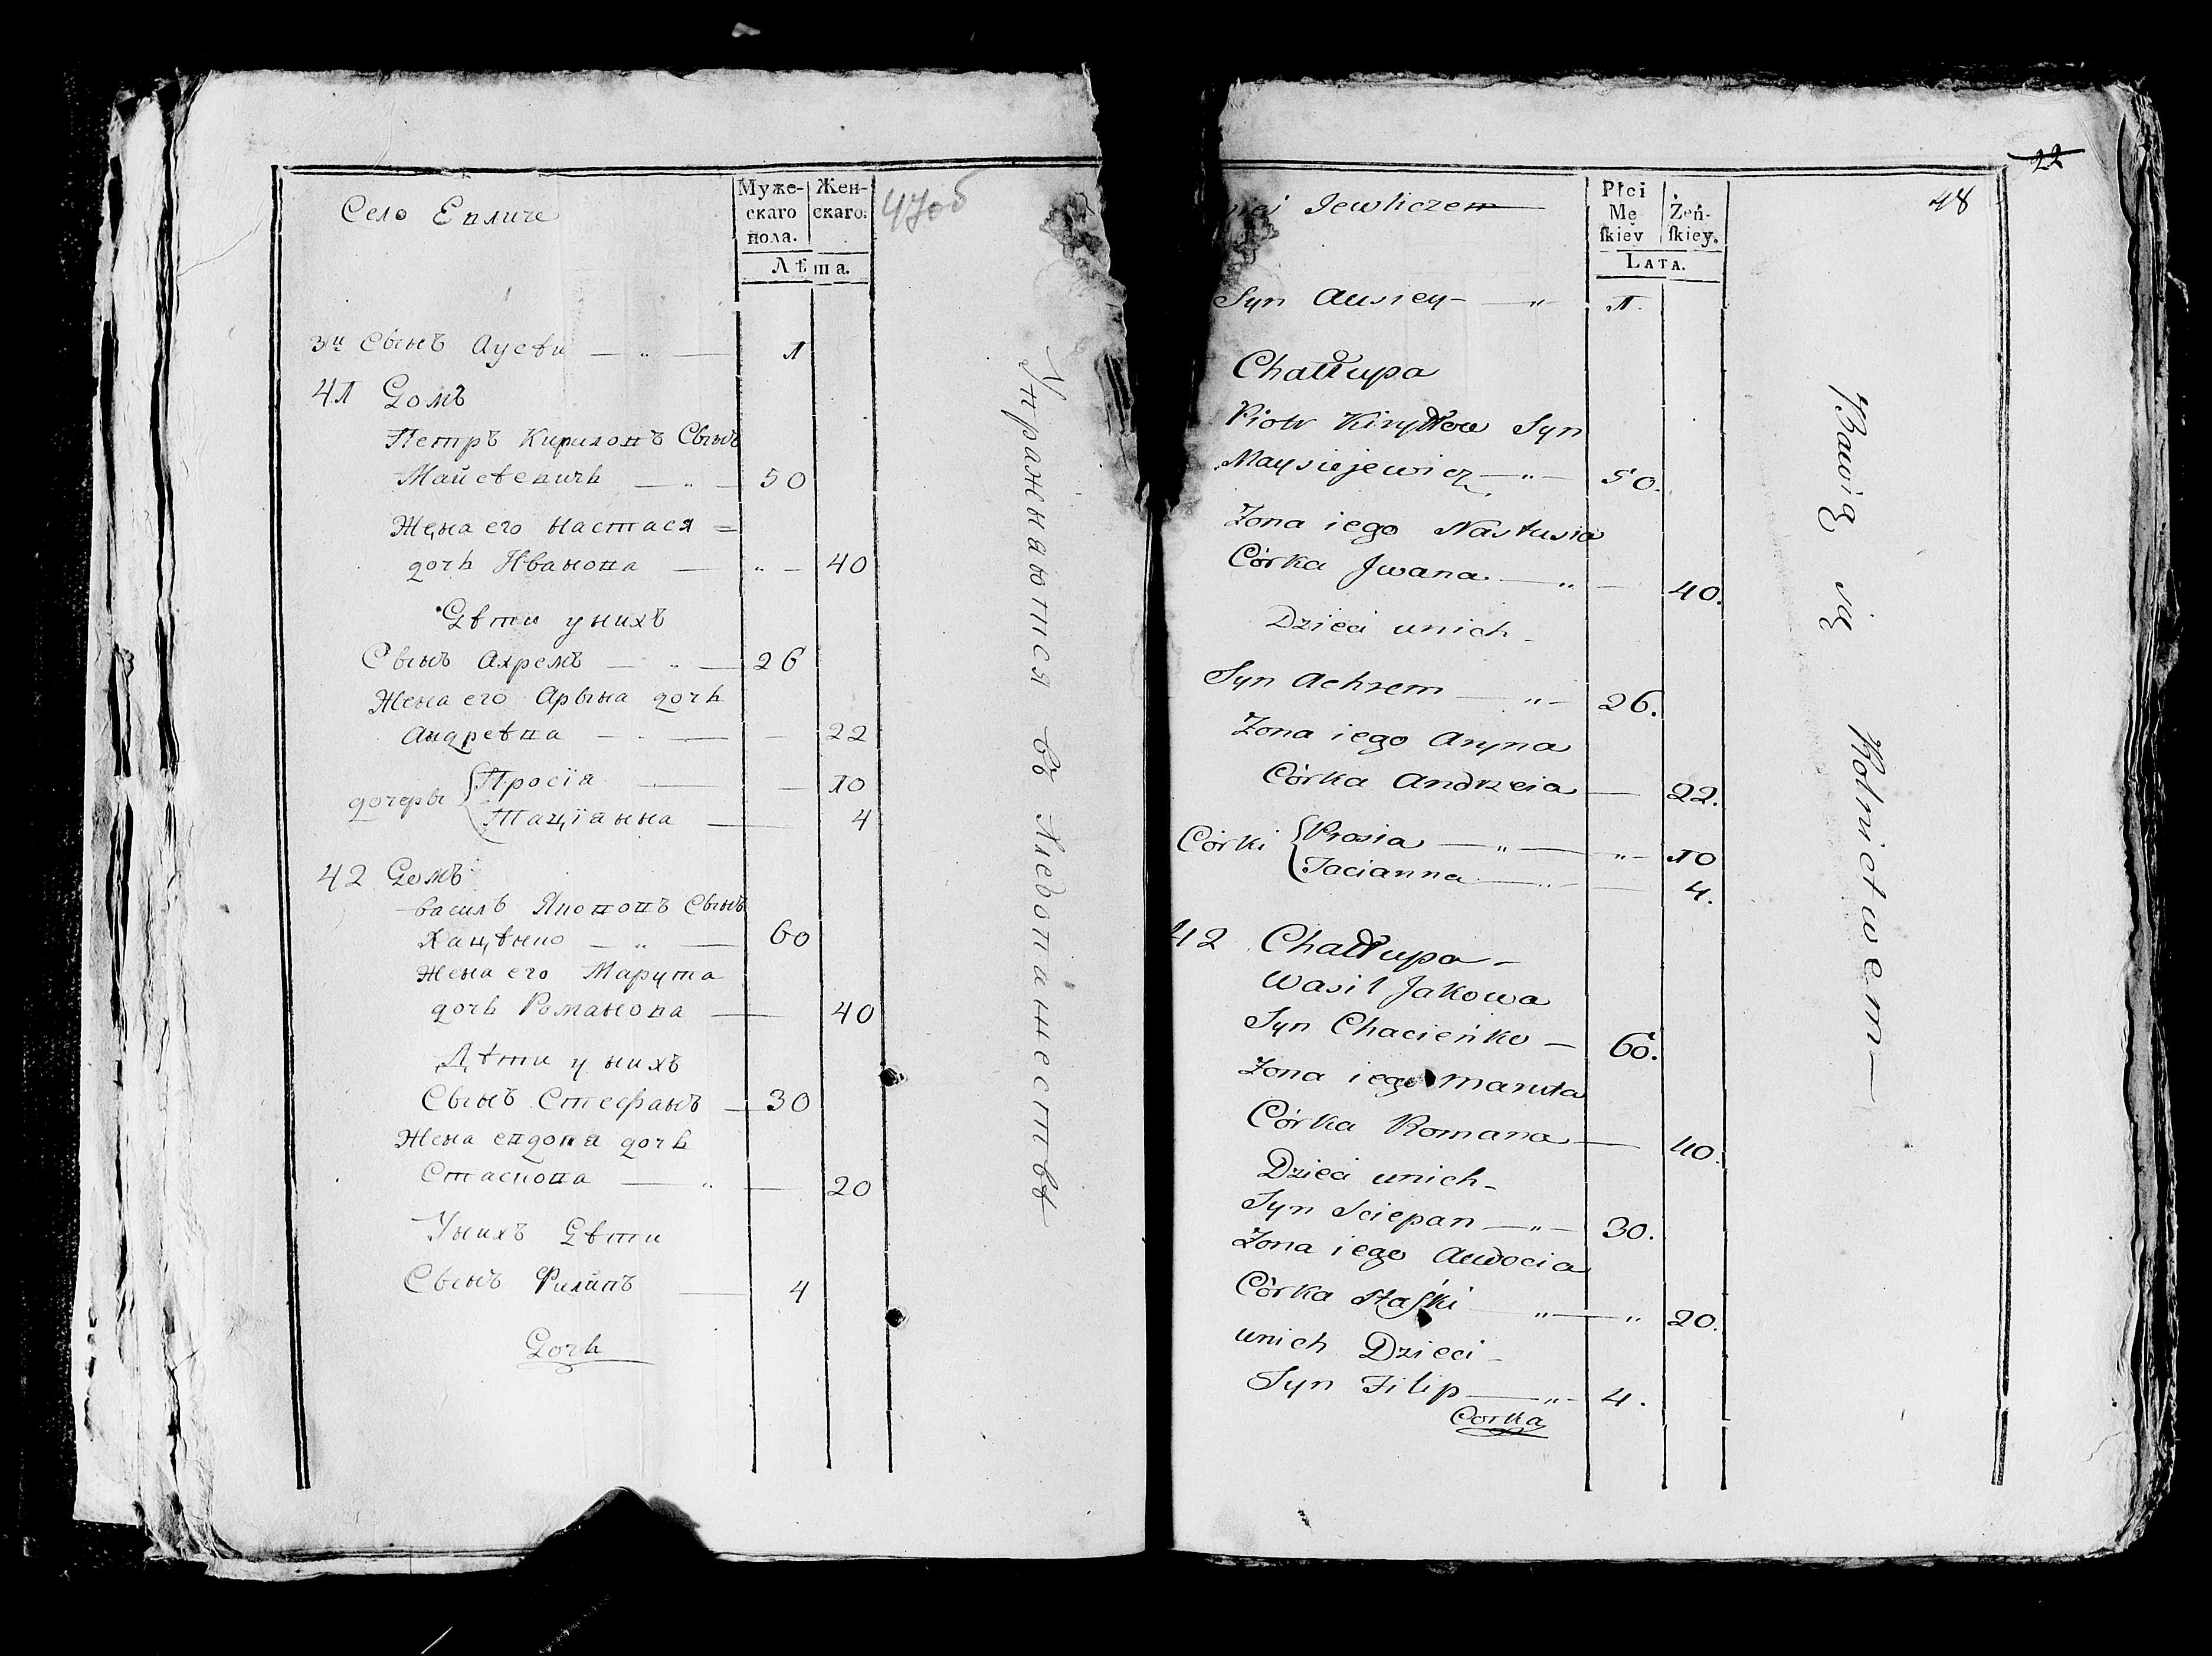 Село Евличе
Муже-
скаго
пола.
Жен-
скаго.
Лѣта.
47об
3й Сынъ Аусѣй — „ — 1
41 Домъ
Петръ Кириловъ Сынъ
Майсѣевичь — „ — 50
Жена его Настася =
дочь Иванова — „ — 40
Дѣти у нихъ
Сынъ Ахремъ — „ — 26
Жена его Арына дочь
Андреѣва — — — 22
дочеры Просїя — — 10
Тацїанна — 4
42 Домъ
Василъ Якововъ Сынъ
Хацѣнко — „ — 60
Жена его Марута
дочь Романова — 40
Дѣти у нихъ
Сынъ Стефанъ — 30
Жена Евдокия дочь
Стаскова — „ — 20
У нихъ Дѣти
Сынъ Филипъ — 4
Дочь
Упражняются въ Хлебопашествѣ
22
48
Jewliczem
Płci
Mę
ſkiey
Żeń-
ſkiey.
LATA.
Syn Ausiey — „ 1.
Chałłupa
Piotr Kiryłłow Syn
Maysiejewicz — „ — 50.
Zona iego Nastusia
Córka Jwana — „ — 40.
Dzieci unich —
Syn Achrem — „ — 26.
Zona iego Aryna
Córka Andrzeia — 22.
Córki Prosia — „ — „ — 10
Tacianna — „ — 4.
42 Chałłupa —
Wasil Jakowa
Syn Chacieńko — 60.
Zona iego Maruta
Córka Romana — 40.
Dzieci unich —
Syn Sciepan — „ — 30.
Zona iego Audocia
Córka Staſki „ — „ 20.
unich Dzieci —
Syn Filip — „ — 4.
Corka
Bawią się Rolnictwem —